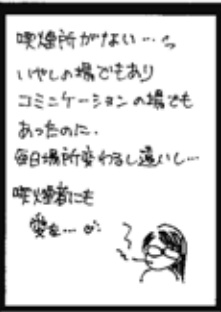 喫煙所がない…
いやしの場でもあり
コミニケーションの場でも
あったのに.
毎日場所変わるし遠いし…
喫煙者にも
愛を…